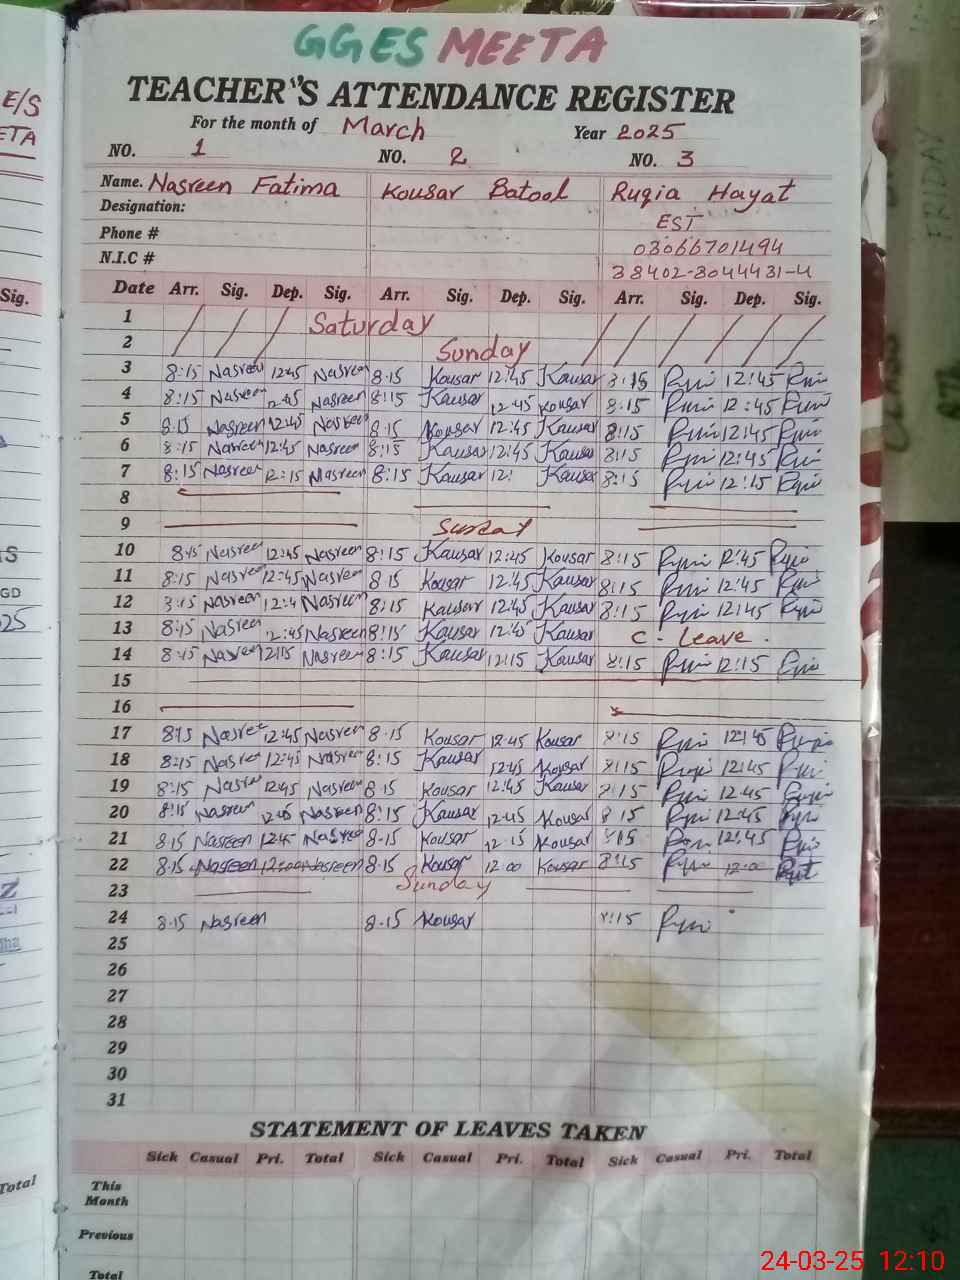 GGES MEETA
E/S
TEACHER'S ATTENDANCE REGISTER
For the month of March Year 2025
NO. 1 NO. 2 NO. 3
Name. Nasreen Fatima Kousar Batool Ruqia Hayat
Designation: EST
Phone # 03066701494
N.I.C # 38402-8044431-4
Sig. Date Arr. Sig. Dep. Sig. Arr. Sig. Dep. Sig. Arr. Sig. Dep. Sig.
1 Saturday
2 Sunday
3 8:15 Nasreen 12:45 Nasreen 8.15 Kousar 12:45 Kausar 8:15 12:45
4 8:15 Nasreen 12:45 Nasreen 8:15 Kausar 12:45 Kousar 8:15 12:45
5 8:15 Nasreen 12:45 Nasreen 8:15 Kousar 12:45 Kausar 8:15 12:45
6 8:15 Nasreen 12:45 Nasreen 8:15 Kausar 12:45 Kausar 8:15 12:45
7 8:15 Nasreen 12:15 Nasreen 8:15 Kausar 12: Kausar 8:15 12:15
8
9 Sunday
10 8:15 Nasreen 12:45 Nasreen 8:15 Kausar 12:45 Kousar 8:15 12:45
11 8:15 Nasreen 12:45 Nasreen 8.15 Kousar 12:45 Kausar 8:15 12:45
12 8:15 Nasreen 12:4 Nasreen 8:15 Kausar 12:45 Kausar 8:15 12:45
13 8:15 Nasreen 12:45 Nasreen 8:15 Kausar 12:45 Kausar C - Leave.
14 8:15 Nasreen 12:15 Nasreen 8:15 Kausar 12:15 Kausar 8:15 12:15
15
16
17 8:15 Nasreen 12:45 Nasreen 8.15 Kousar 12.45 Kousar 8:15 12:45
18 8:15 Nasreen 12:45 Nasreen 8:15 Kausar 12:45 Kousar 8:15 12:45
19 8:15 Nasreen 12:45 Nasreen 8.15 Kousar 12:45 Kausar 8:15 12:45
20 8:15 Nasreen 12:45 Nasreen 8:15 Kausar 12:45 Kousar 8:15 12:45
21 8:15 Nasreen 12:45 Nasreen 8-15 Kousar 12:15 Kousar 8:15 12:45
22 8:15 Nasreen 12:00 Nasreen 8.15 Kousar 12:00 Kousar 8:15 12:00
23 Sunday
24 8.15 Nasreen 8.15 Kousar 8:15
25
26
27
28
29
30
31
STATEMENT OF LEAVES TAKEN
Sick Casual Pri. Total Sick Casual Pri. Total Sick Casual Pri. Total
This Month
Total
Previous
Total
24-03-25 12:10
FRIDAY